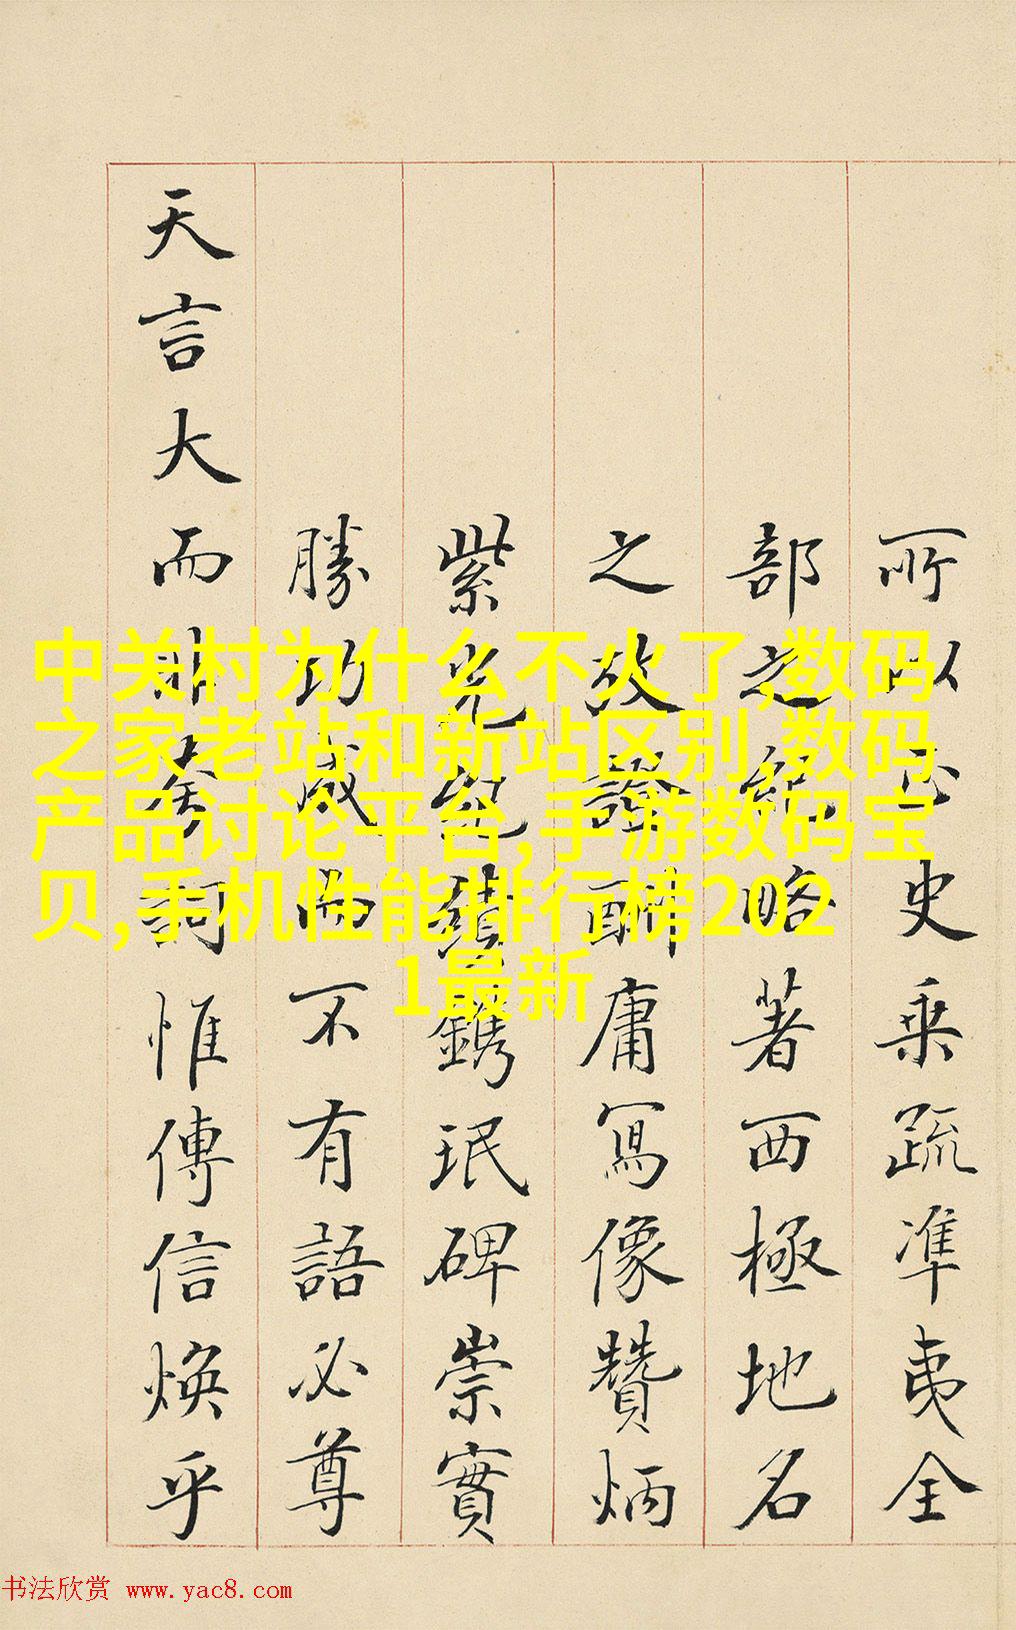 所以正史乘疏準夷全
部之紀略著西極地名
之故證酬庸寫像贊炳
紫光紀績鐫珉碑崇實
勝功成而不有語必尊
天言大而非夸詞惟傳信煥乎
中关村为什么不火了,数码
之家老站和新站区别,数码
产品讨论平台,手游数码宝
贝,手机性能排行榜202
1最新
书法欣赏 www.yac8.com